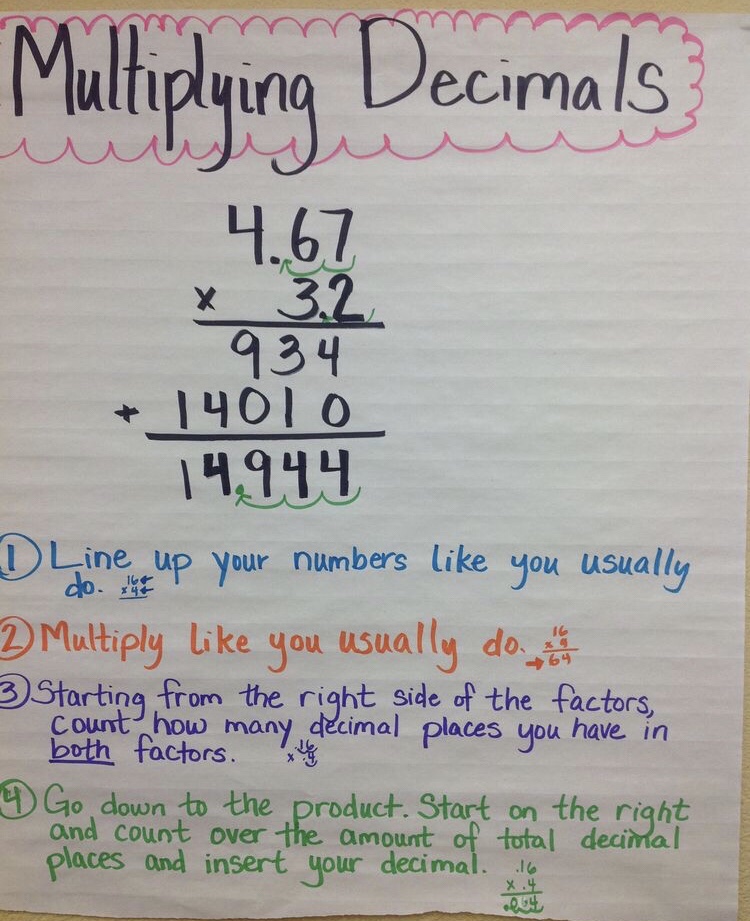 Multiplying Decimals
4.67
x 3.2
934
+ 14010
14.944
1 Line up your numbers like you usually
do. 16
x 4
2 Multiply like you usually do. 16
x 4
64
3 Starting from the right side of the factors,
count how many decimal places you have in
both factors. .16
x .4
4 Go down to the product. Start on the right
and count over the amount of total decimal
places and insert your decimal. .16
x .4
.064